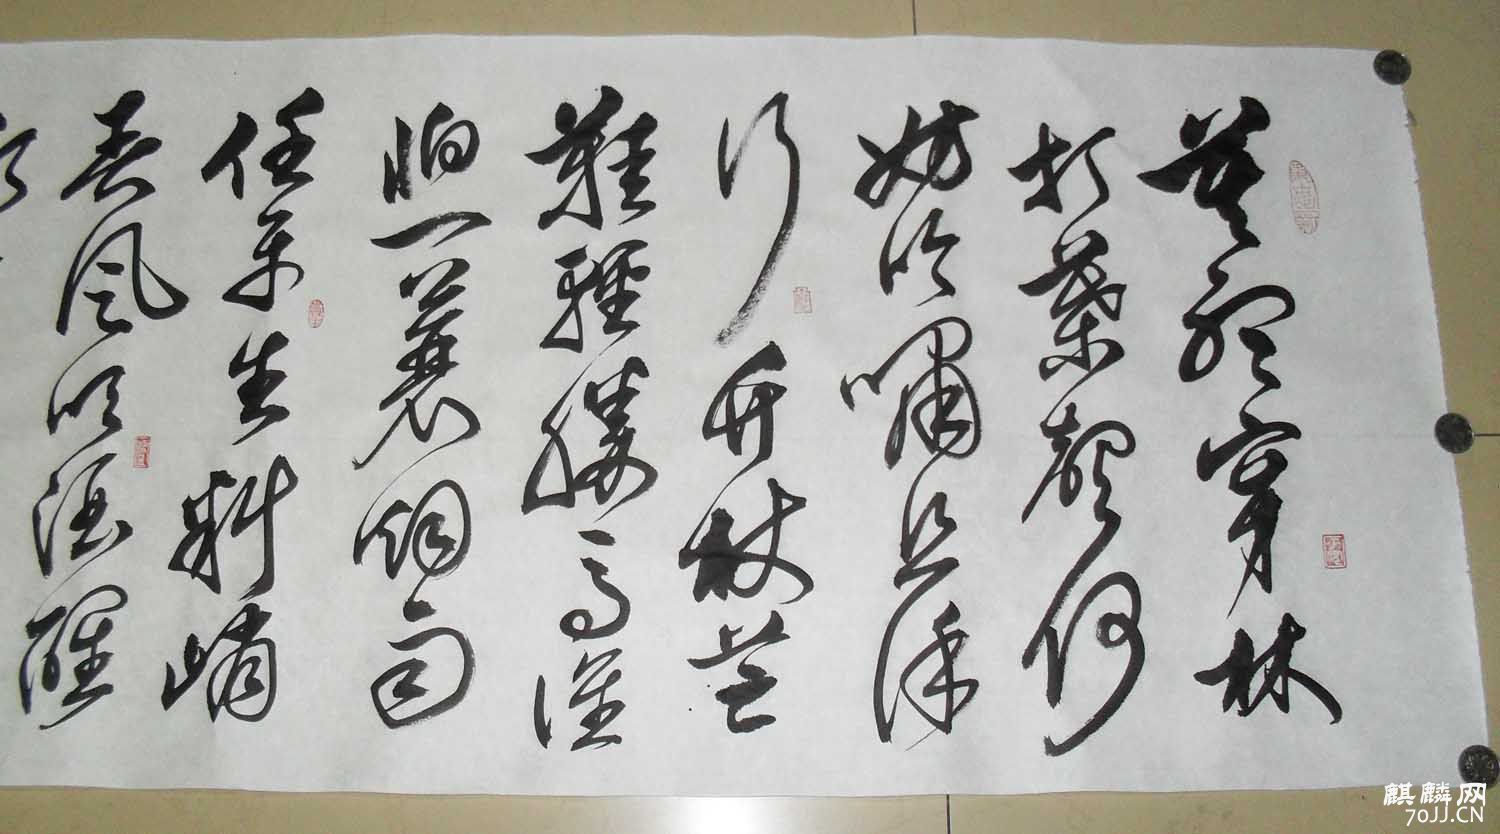 莫聽穿林
打葉聲何
妨吟嘯且徐
行竹杖芒
鞋輕勝馬誰
怕一蓑烟雨
任平生料峭
春風吹酒醒
麒麟网
70JJ.CN